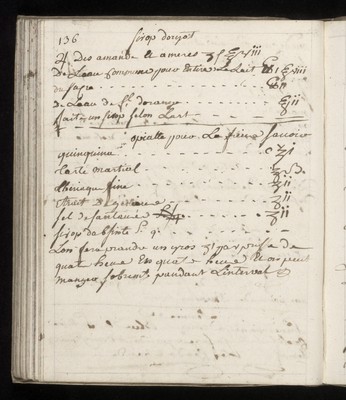 136 sirop dorgat
♃ Des amande & ameres ʒviii
De Leau commune pour Tirer Le Lait ℔i ʒviii
du sucre ℔ii
de Leau de fl. dorange ℥ii
fait un sirop selon Lart
opiatte pour La fievre
quinquina ℥i
tartre martiel
theriaque fine ʒii
extrait de genievre ʒii
sel de fantaisie ʒii
sirop dabsinte q.
Lon fera prandre un gros ʒi par prise de
quat heure En quat heure Et on peut
manger sobremt pandant Linterval